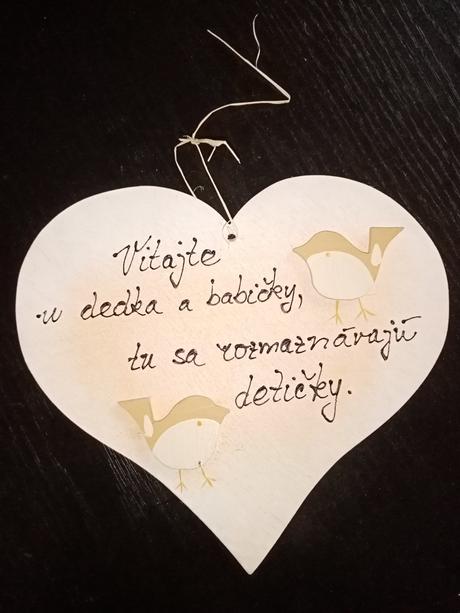 Vitajte
u dedka a babičky,
tu sa rozmaznávajú
detičky.